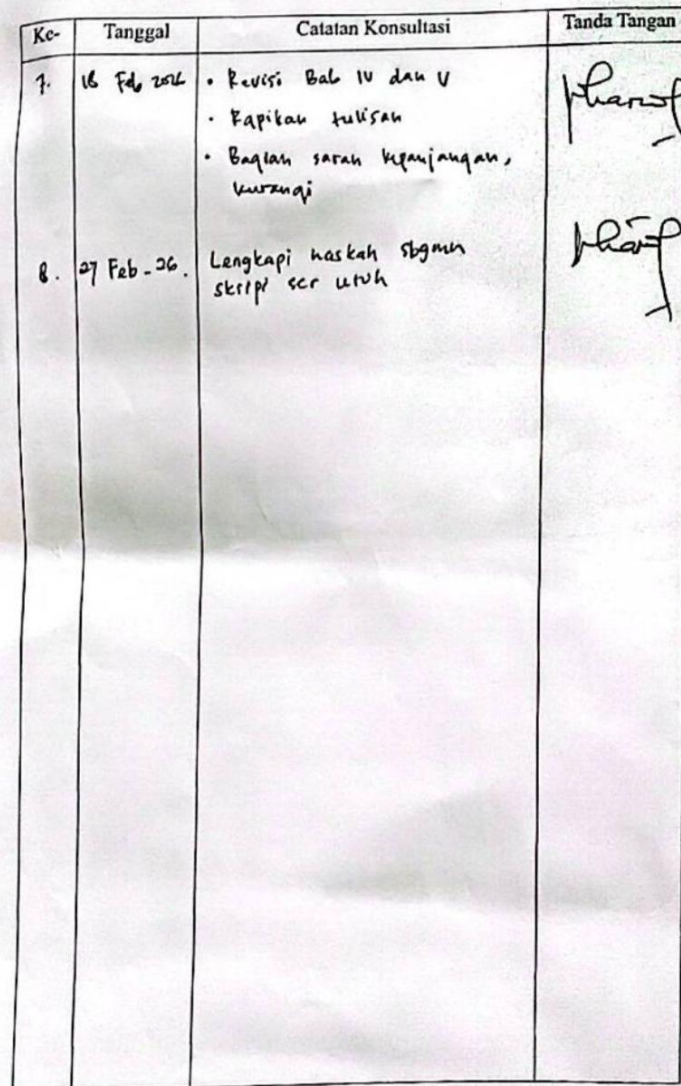 Ke- Tanggal Catatan Konsultasi Tanda Tangan
7. 18 Feb 2026 • Revisi Bab IV dan V
• Rapikan tulisan
• Bagian saran kepanjangan,
kurangi
8. 27 Feb-26. Lengkapi naskah sbgmn
skripsi scr utuh